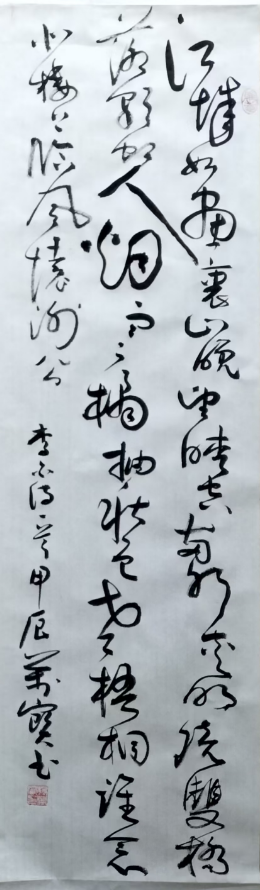 江城如畫裏山晚望晴空兩水夾明鏡雙橋
落彩虹人烟寒橘柚秋色老梧桐誰念
北樓上臨風懷謝公 李白詩一首甲辰萬寶书